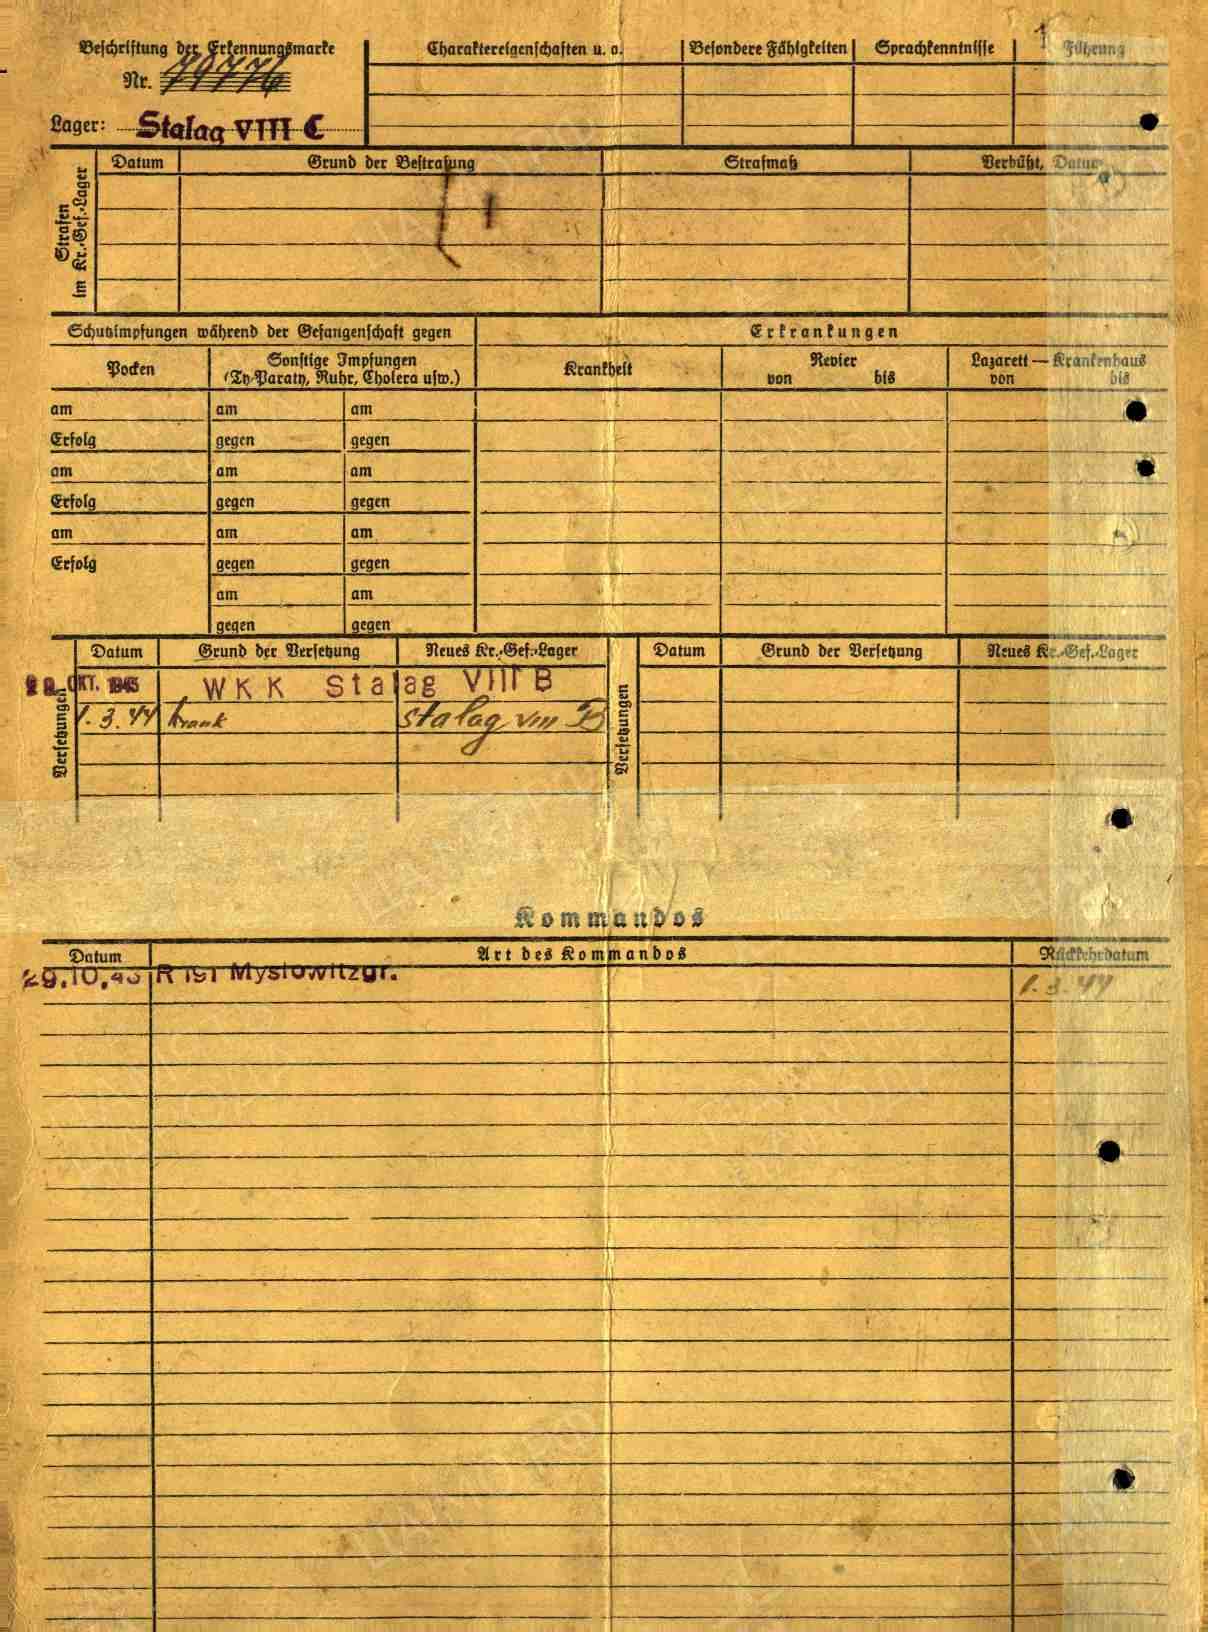 Beschriftung der Erkennungsmarke
Nr. 79776
Lager: Stalag VIII C
Charaktereigenschaften u. a.
Besondere Fähigkeiten
Sprachkenntnisse
Führung
Strafen im Kr.-Gef.-Lager
Datum
Grund der Bestrafung
Strafmaß
Verbüßt, Datum
Schutzimpfungen während der Gefangenschaft gegen
Erkrankungen
Pocken
Sonstige Impfungen
(Ty-Paraty, Ruhr, Cholera usw.)
Krankheit
Revier
von bis
Lazarett — Krankenhaus
von bis
am am am
Erfolg gegen gegen
am am am
Erfolg gegen gegen
am am am
Erfolg gegen gegen
am am
gegen gegen
Versetzungen
Datum Grund der Versetzung Neues Kr.-Gef.-Lager
29. OKT. 1943 WKK Stalag VIII B
1.3.44 krank Stalag VIII B
Versetzungen
Datum Grund der Versetzung Neues Kr.-Gef.-Lager
Kommandos
Datum Art des Kommandos Rückkehrdatum
29.10.43 R 191 Myslowitzgr. 1.3.44